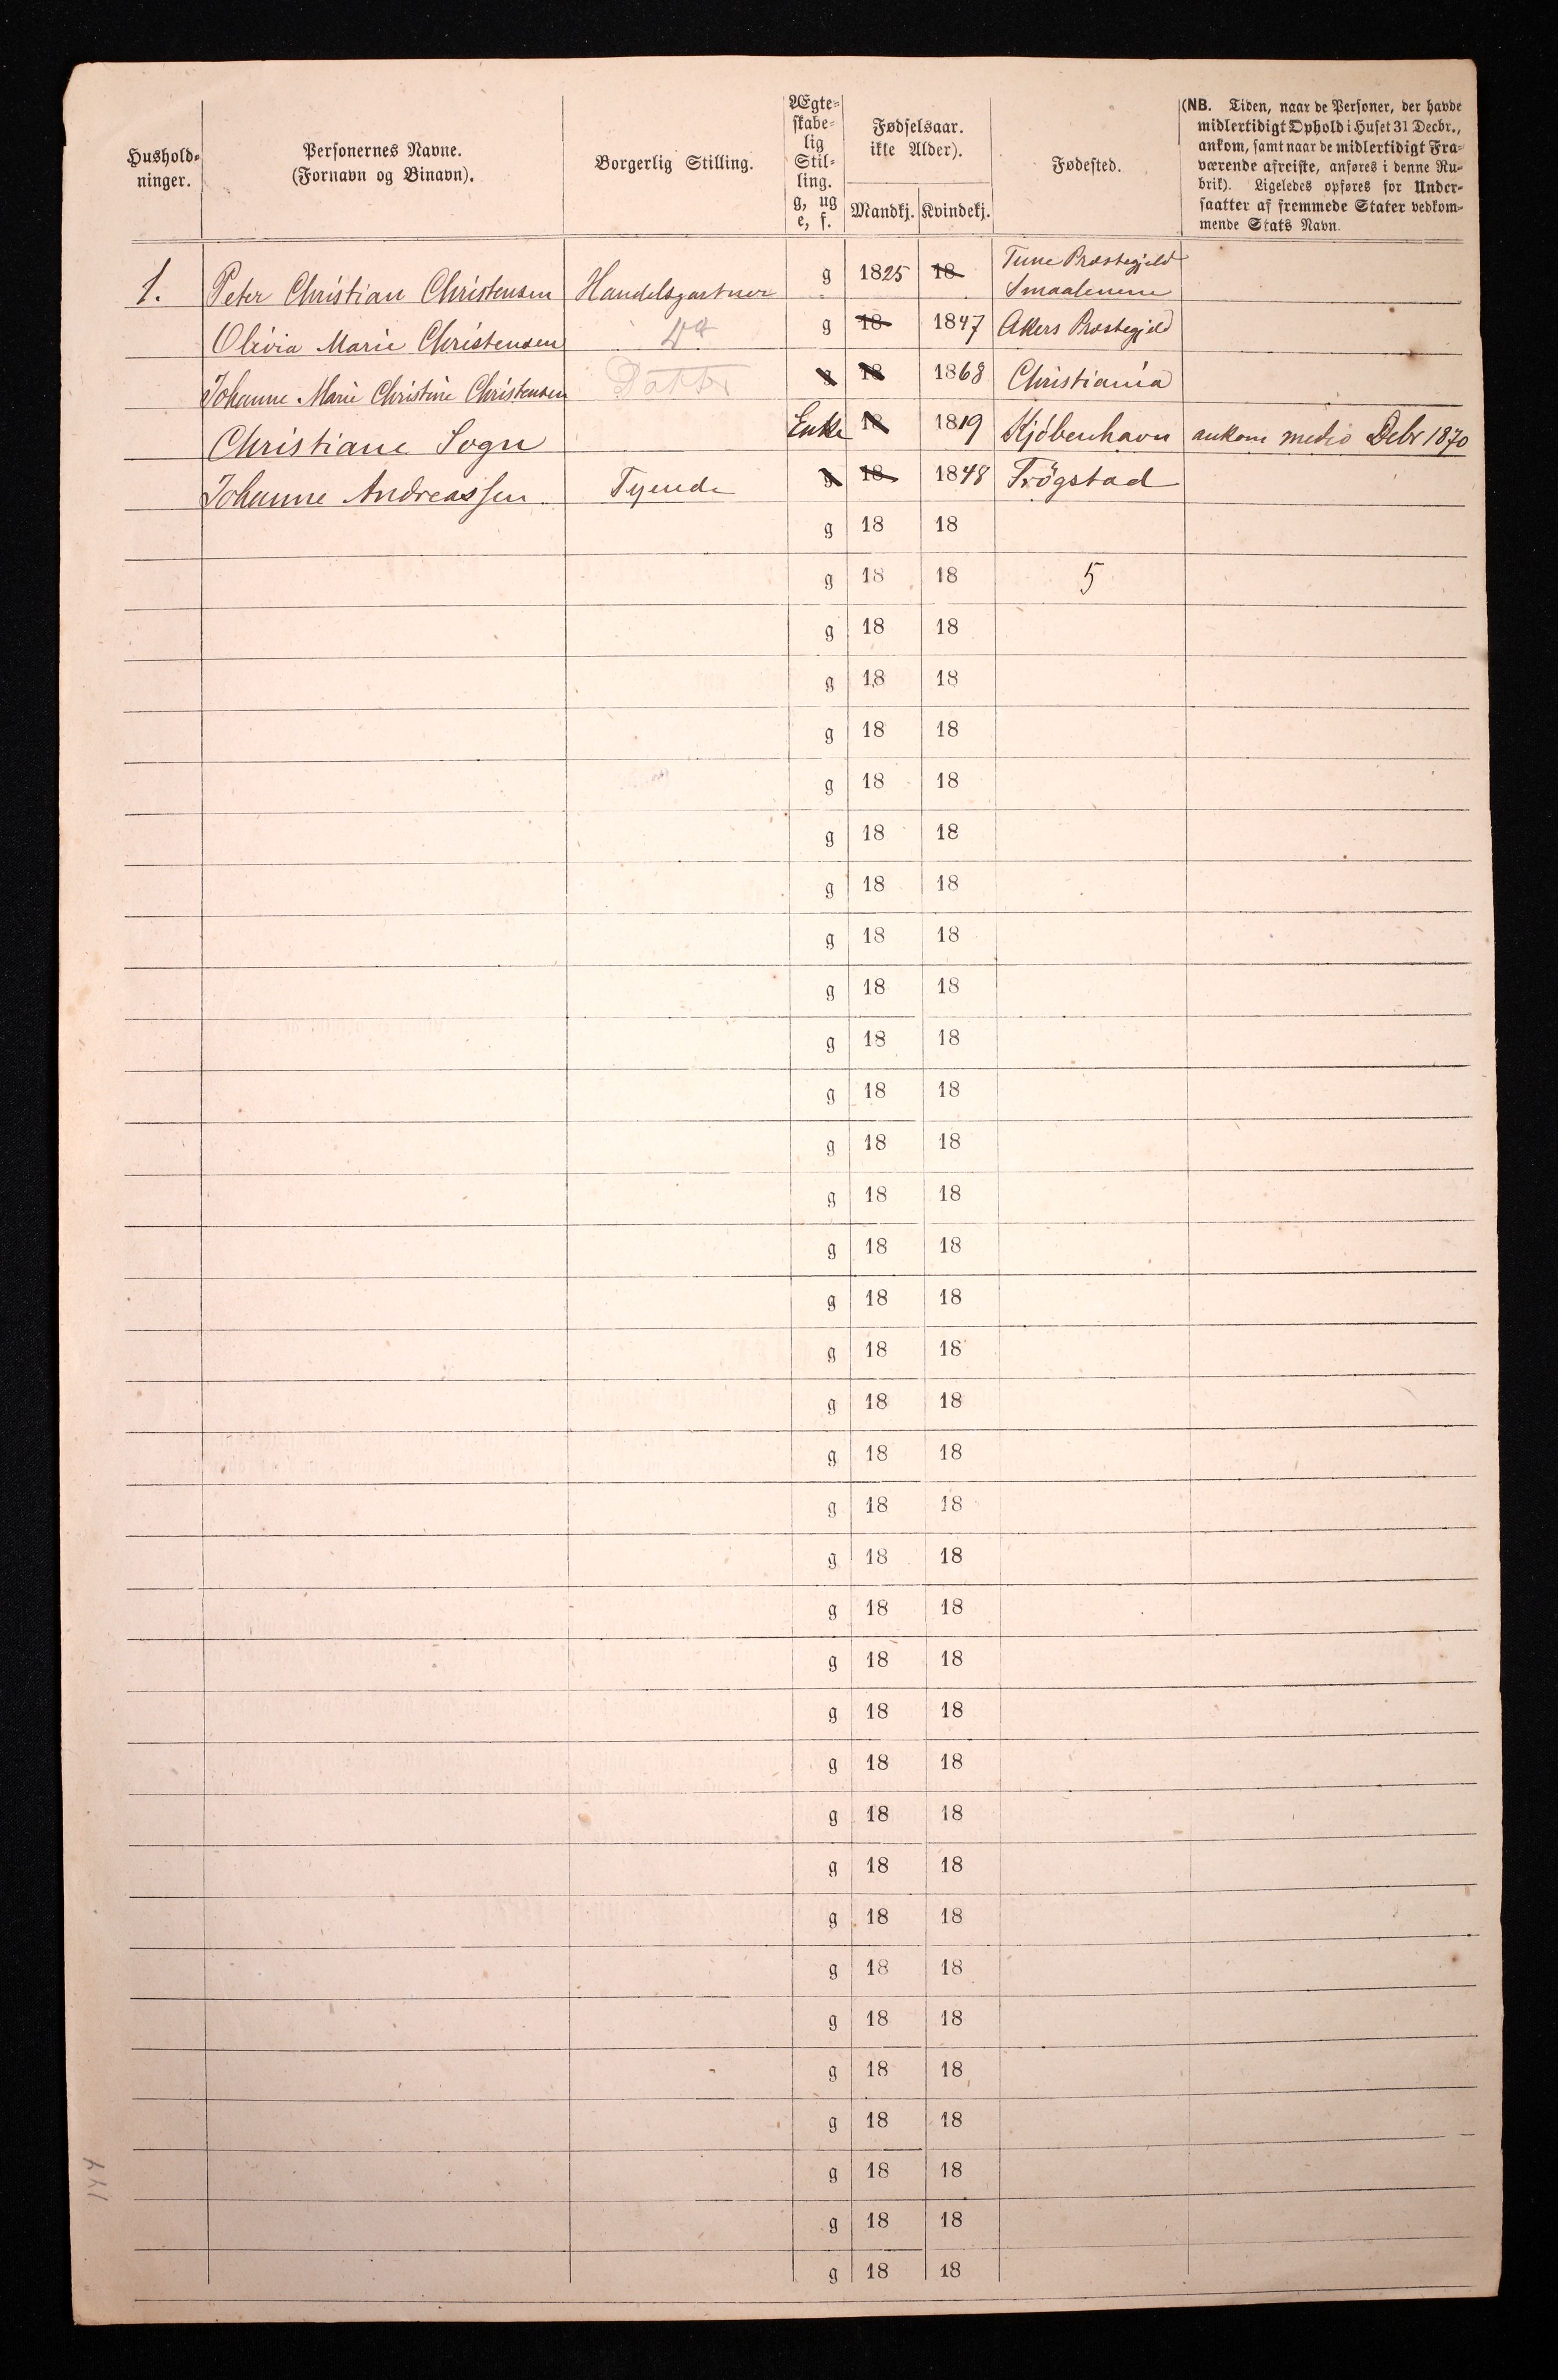 Hushold-
ninger.
Personernes Navne.
(Fornavn og Binavn).
Borgerlig Stilling.
Ægte-
skabe-
lig
Stil-
ling.
g, ug
e, f.
Fødselsaar.
ikke Alder).
Mandkj. Kvindekj.
Fødested.
(NB. Tiden, naar de Personer, der havde
midlertidigt Ophold i Huset 31 Decbr.,
ankom, samt naar de midlertidigt Fra-
værende afreiste, anføres i denne Ru-
brik). Ligeledes opføres for Under-
saatter af fremmede Stater vedkom-
mende Stats Navn.
1. Peter Christian Christensen Handelsgartner g 1825 18 Tune Præstegjeld
Smaalenene
Olivia Marie Christensen g 18 1847 Akers Præstegjeld
Johanne Marie Christine Christensen Datter g 18 1868 Christiania
Christiane Sogn Enke 18 1819 Kjöbenhavn ankom medio Debr 1870
Johanne Andreassen Tyende g 18 1848 Trögstad
g 18 18
g 18 18 5
g 18 18
g 18 18
g 18 18
g 18 18
g 18 18
g 18 18
g 18 18
g 18 18
g 18 18
g 18 18
g 18 18
g 18 18
g 18 18
g 18 18
g 18 18
g 18 18
g 18 18
g 18 18
g 18 18
g 18 18
g 18 18
g 18 18
g 18 18
g 18 18
g 18 18
g 18 18
g 18 18
g 18 18
g 18 18
g 18 18
g 18 18
g 18 18
g 18 18